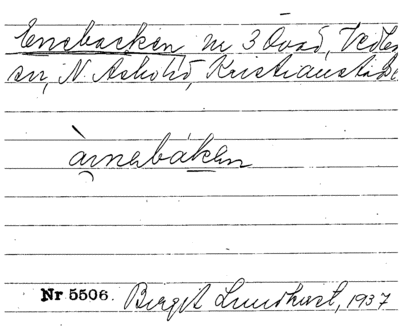 Enebacken nr 3 Övad, Vedlen
sn, N. Åsbo hd, Kristianstads
àrnebáken
Nr 5506. Birgit Lundkvist, 1937